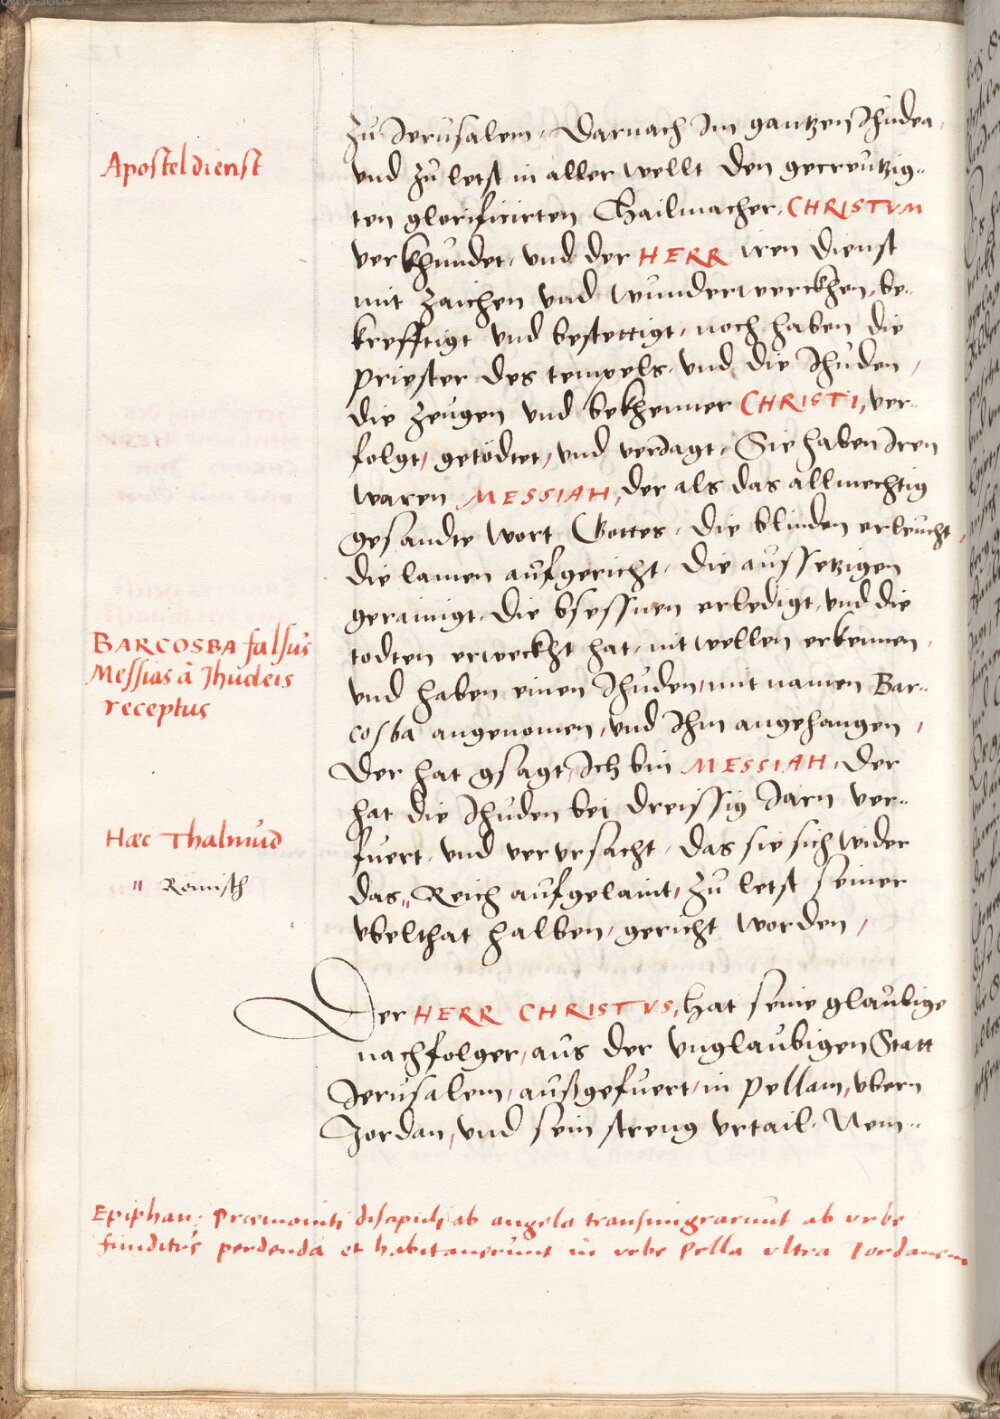 Aposteldienst
zu Jerusalem, Darnach Im gantzen Jhudea,
vnd zu letst in aller wellt den gecreutzig-
ten glorificirten Hailmacher, CHRISTVM
verkhundet, vnd der HERR iren dienst
mit zaichen vnd wunderwerckhen, be-
krefftigt vnd bestettigt, noch haben die
priester des tempels, vnd die Jhuden,
die zeugen vnd bekhenner CHRISTI, ver-
folgt, getödtet, vnd veriagt, Sie haben Iren
waren MESSIAH, der als das allmechtig
gesandte wort Gottes, die blinden erleucht,
die lamen aufgericht, die aussetzigen
gerainigt, die bsessnen erledigt, vnd die
todten erweckht hat, nit wellen erkennen,
BARCOSBA falsus
Messias à Jhudeis
receptus
vnd haben einen Jhuden, mit namen Bar-
cosba angenomen, vnd Ihm angehangen,
Der hat gsagt, Ich bin MESSIAH, Der
hat die Jhuden bei dreissig Iarn ver-
Hæc Thalmud
fuert, vnd vervrsacht, das sie sich wider
" Römisch
das " Reich aufgelaint, zu letst seiner
vbelthat halben, gericht worden,
Der HERR CHRISTVS, hat seine glaubige
nachfolger, aus der vnglaubigen Statt
Jerusalem, außgefuert, in Pellam, vbern
Jordan, vnd sein streng vrtail, Nem-
Epiphan: Præmoniti discipuli ab angelo transmigrarunt ab vrbe
funditus perdenda et habitauerunt in vrbe Pella vltra Iordanem